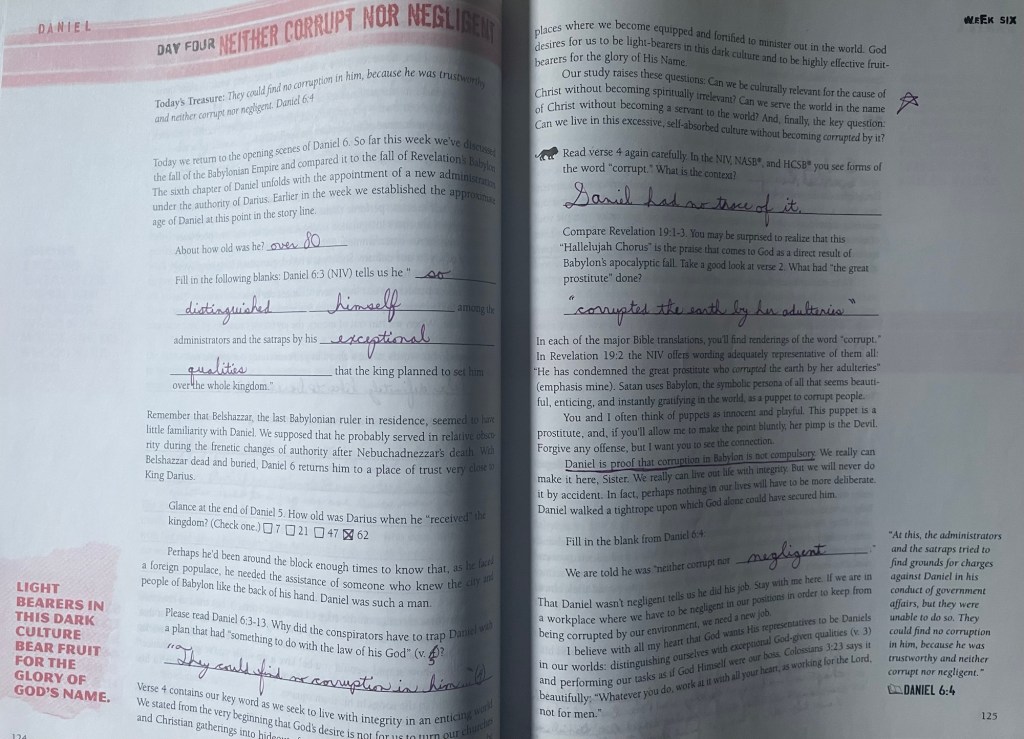 DANIEL
DAY FOUR NEITHER CORRUPT NOR NEGLIGENT
Today's Treasure: They could find no corruption in him, because he was trustworthy
and neither corrupt nor negligent. Daniel 6:4
Today we return to the opening scenes of Daniel 6. So far this week we've discussed
the fall of the Babylonian Empire and compared it to the fall of Revelation's Babylon.
The sixth chapter of Daniel unfolds with the appointment of a new administration
under the authority of Darius. Earlier in the week we established the approximate
age of Daniel at this point in the story line.
About how old was he? over 80
Fill in the following blanks: Daniel 6:3 (NIV) tells us he " so
distinguished himself among the
administrators and the satraps by his exceptional
qualities that the king planned to set him
over the whole kingdom."
Remember that Belshazzar, the last Babylonian ruler in residence, seemed to have
little familiarity with Daniel. We supposed that he probably served in relative obscu-
rity during the frenetic changes of authority after Nebuchadnezzar's death. With
Belshazzar dead and buried, Daniel 6 returns him to a place of trust very close to
King Darius.
Glance at the end of Daniel 5. How old was Darius when he "received" the
kingdom? (Check one.) ☐ 7 ☐ 21 ☐ 47 ☒ 62
Perhaps he'd been around the block enough times to know that, as he faced
a foreign populace, he needed the assistance of someone who knew the city and
people of Babylon like the back of his hand. Daniel was such a man.
Please read Daniel 6:3-13. Why did the conspirators have to trap Daniel with
a plan that had "something to do with the law of his God" (v. 5)?
"They could find no corruption in him" (4)
Verse 4 contains our key word as we seek to live with integrity in an enticing world.
We stated from the very beginning that God's desire is not for us to turn our churches
and Christian gatherings into
LIGHT
BEARERS IN
THIS DARK
CULTURE
BEAR FRUIT
FOR THE
GLORY OF
GOD'S NAME.
124
WEEK SIX
places where we become equipped and fortified to minister out in the world. God
desires for us to be light-bearers in this dark culture and to be highly effective fruit-
bearers for the glory of His Name.
Our study raises these questions: Can we be culturally relevant for the cause of
Christ without becoming spiritually irrelevant? Can we serve the world in the name
of Christ without becoming a servant to the world? And, finally, the key question:
Can we live in this excessive, self-absorbed culture without becoming corrupted by it?
Read verse 4 again carefully. In the NIV, NASB®, and HCSB® you see forms of
the word "corrupt." What is the context?
Daniel had no trace of it.
Compare Revelation 19:1-3. You may be surprised to realize that this
"Hallelujah Chorus" is the praise that comes to God as a direct result of
Babylon's apocalyptic fall. Take a good look at verse 2. What had "the great
prostitute" done?
"corrupted the earth by her adulteries"
In each of the major Bible translations, you'll find renderings of the word "corrupt."
In Revelation 19:2 the NIV offers wording adequately representative of them all:
"He has condemned the great prostitute who corrupted the earth by her adulteries"
(emphasis mine). Satan uses Babylon, the symbolic persona of all that seems beauti-
ful, enticing, and instantly gratifying in the world, as a puppet to corrupt people.
You and I often think of puppets as innocent and playful. This puppet is a
prostitute, and, if you'll allow me to make the point bluntly, her pimp is the Devil.
Forgive any offense, but I want you to see the connection.
Daniel is proof that corruption in Babylon is not compulsory. We really can
make it here, Sister. We really can live our life with integrity. But we will never do
it by accident. In fact, perhaps nothing in our lives will have to be more deliberate.
Daniel walked a tightrope upon which God alone could have secured him.
Fill in the blank from Daniel 6:4:
We are told he was "neither corrupt nor negligent ."
That Daniel wasn't negligent tells us he did his job. Stay with me here. If we are in
a workplace where we have to be negligent in our positions in order to keep from
being corrupted by our environment, we need a new job.
I believe with all my heart that God wants His representatives to be Daniels
in our worlds: distinguishing ourselves with exceptional God-given qualities (v. 3)
and performing our tasks as if God Himself were our boss. Colossians 3:23 says it
beautifully: "Whatever you do, work at it with all your heart, as working for the Lord,
not for men."
"At this, the administrators
and the satraps tried to
find grounds for charges
against Daniel in his
conduct of government
affairs, but they were
unable to do so. They
could find no corruption
in him, because he was
trustworthy and neither
corrupt nor negligent."
DANIEL 6:4
125